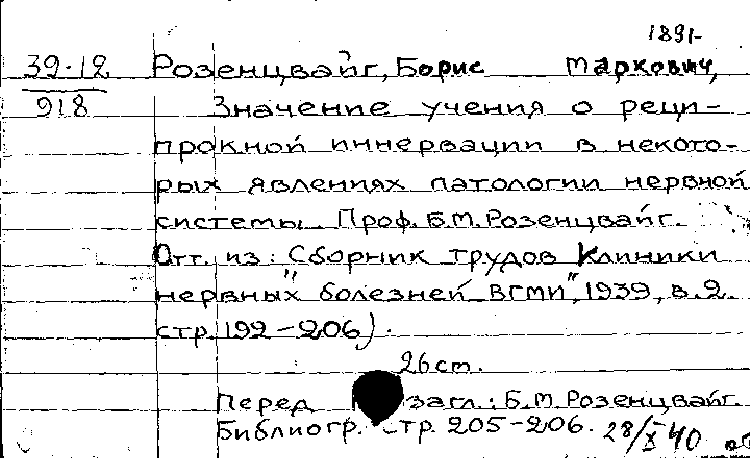 1891-
39-12 Розенцвайг, Борис Маркович,
918 Значение учения о реци-
прокной иннервации в некото-
рых явлениях патологии нервной
системы. Проф. Б.М. Розенцвайг.
Отт. из: "Сборник трудов Клиники
нервных болезней ВГМИ", 1939, в. 2
стр. 192-206).
26 ст.
Перед загл.: Б.М. Розенцвайг.
Библиогр. стр. 205-206. 28/X 40